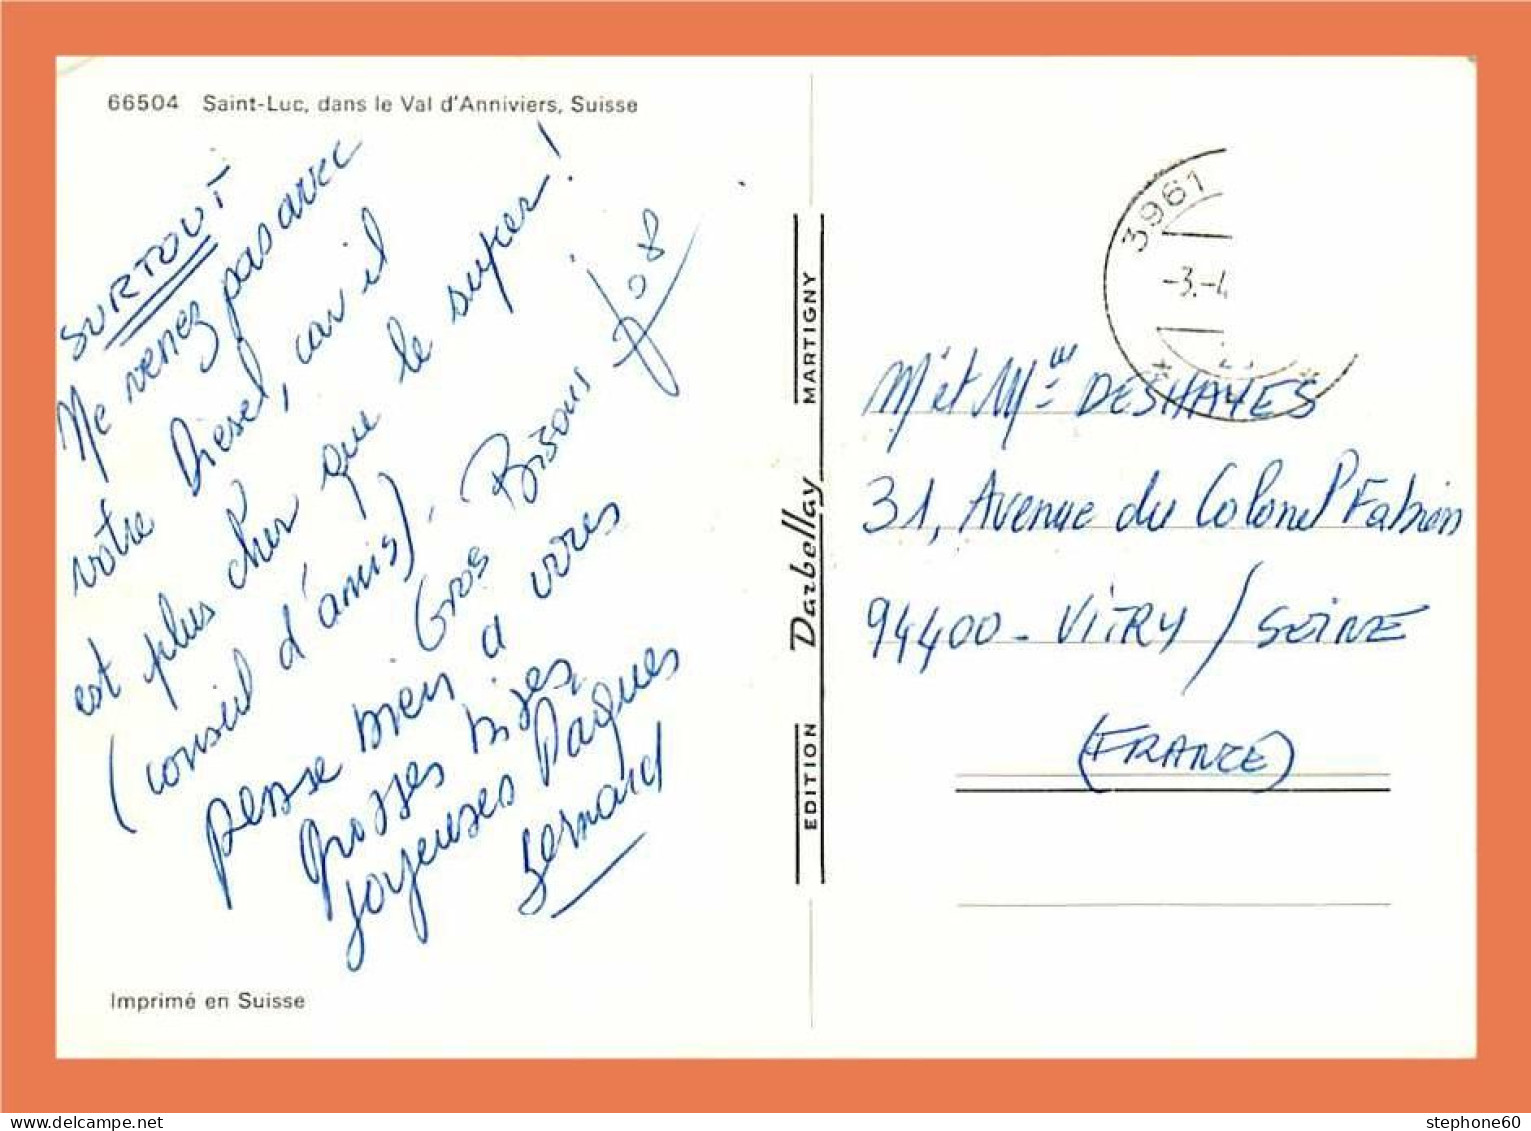 66504 Saint-Luc, dans le Val d'Anniviers, Suisse
SURTOUT
Ne venez pas avec
votre Diesel, car il
est plus cher que le super!
(conseil d'amis). Bisous
Gros
pense bien à vous
grosses bises
Joyeuses Pâques
Bernard
Imprimé en Suisse
EDITION Darbellay MARTIGNY
3961
-3.-4
M et Mme DESHAYES
31, Avenue du Colonel Fabien
94400 - VITRY / SEINE
(FRANCE)
stephone60